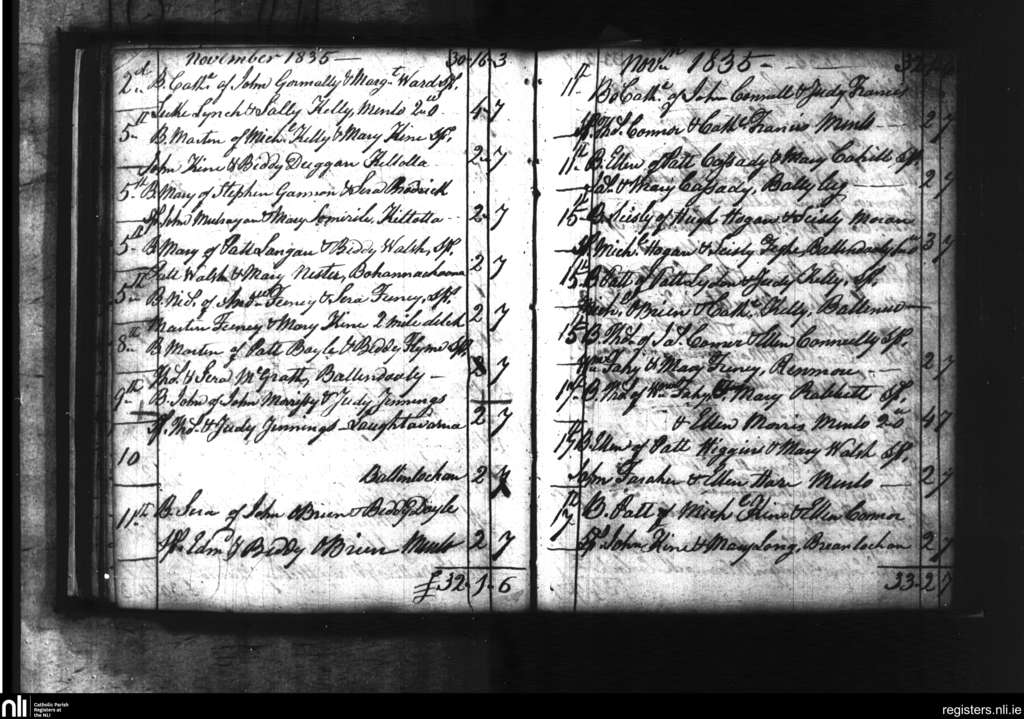 November 1835 — 30 16 3
2d B. Cathe. of John Gormally & Margt. Ward Sp.
Luke Lynch & Sally Kelly, Menlo 2nd 0 4 7
5th B. Martin of Michl. Kelly & Mary Kine Sp.
John Kine & Biddy Duggan Killotta 2 7
5th B. Mary of Stephen Gannon & Sera Brodrick
Sp. John Mulryan & Mary, Killotta 2 7
5th B. Mary of Patt Langan & Biddy Walsh, Sp.
Patt Walsh & Mary Nester, Bohannacharra 2 7
5th B. Nics. of Andw. Feeney & Sera Feeney, Sp.
Martin Feeney & Mary Kine 2 mile ditch 2 7
8th B. Martin of Patt Boyle & Biddy Flynn Sp.
Thos. & Sera McGrath, Ballindooly — 8 7
9th B. John of John Morrissy & Judy Jennings
Sp. Thos. & Judy Jennings — 2 7
10
Ballinlochan 2 7
11th B. Sera of John OBrien & Biddy Doyle
Sp. Edmd. & Biddy OBrien Menlo 2 7
£32 1 6
Novr. 1835 — 32 1 6
11th B. Cathe. of John Connell & Judy Francis
Sp. Thos. Connor & Cathe. Francis Menlo — 2 7
11th B. Ellen of Patt Cassady & Mary Cahill Sp.
Jas. & Mary Cassady, Bally 2 7
15 B. Seisly of Hugh Hogan & Seisly Moran
Sp. Michl. Hogan & Seisly, Ballindooly 3 7
15 B. Patt of Patt Lydon & Judy Kelly, Sp.
Michl. OBrien & Cathe. Kelly, —
15 B. Thos. of Jas. Comer & Ellen Connelly Sp.
Wm. Fahy & Mary Feeney, Renmore — 2 7
17th B. Thos. of Wm. Fahy & Mary Rabbett Sp.
& Ellen Morris Menlo 2nd 0 4 7
19 B. Ellen of Patt Higgins & Mary Walsh Sp.
John Faraher & Ellen Menlo — 2 7
B. Patt of Michl. Kine & Ellen Connor
Sp. John Kine & Mary Long, Breanlochan 2 7
33 2 7
nli
Catholic Parish
Registers at
the NLI
registers.nli.ie